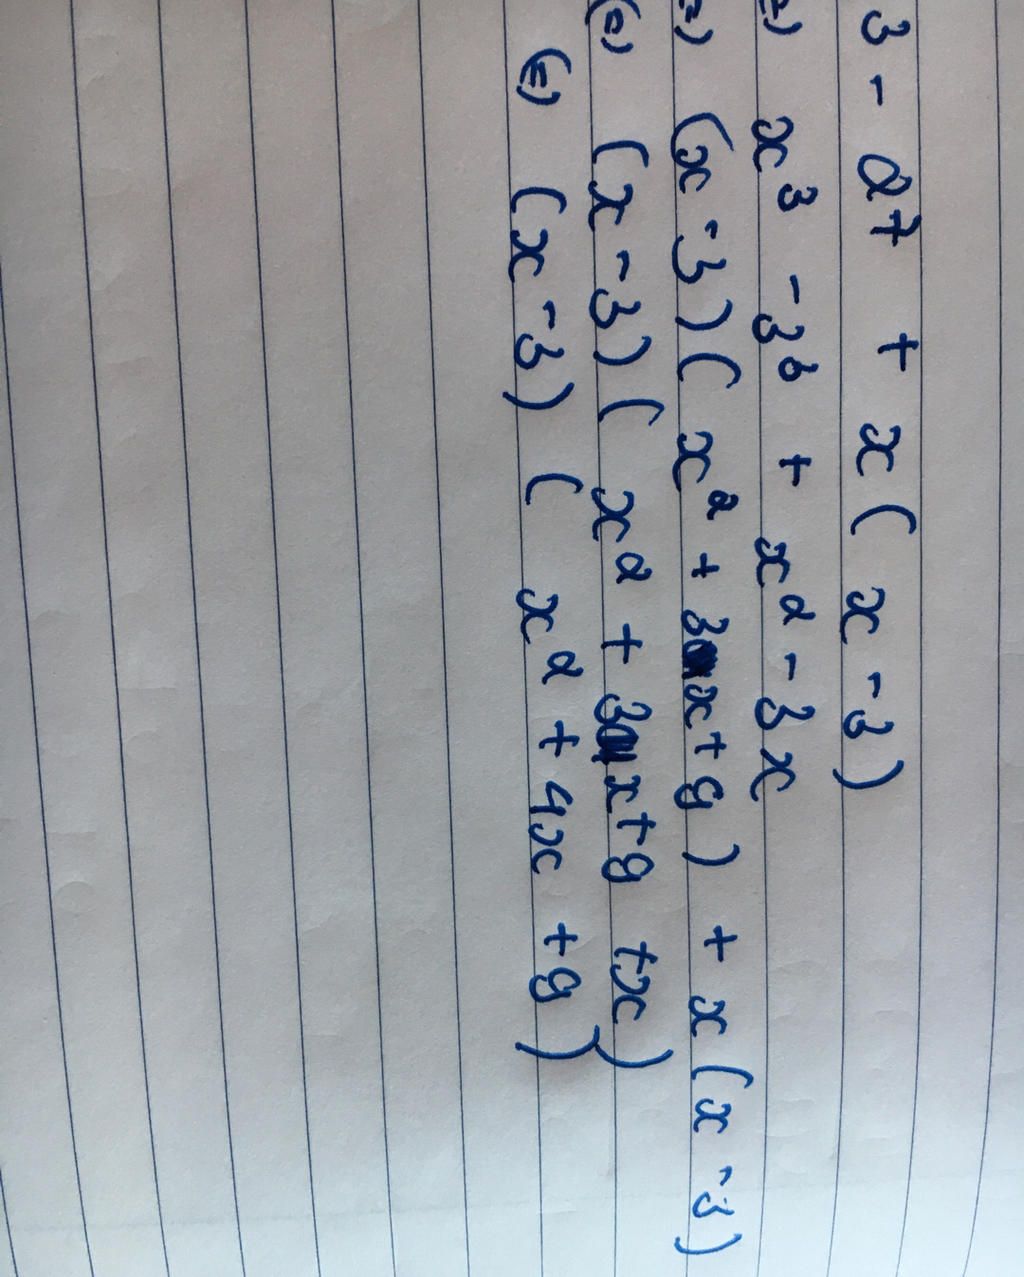 3 - 27 + x(x-3)
(=) x³ - 3³ + x² - 3x
(=) (x-3)(x² + 3x+9) + x(x-3)
(=) (x-3)(x² + 3x+9 +x)
(=) (x-3) (x² + 4x +9)